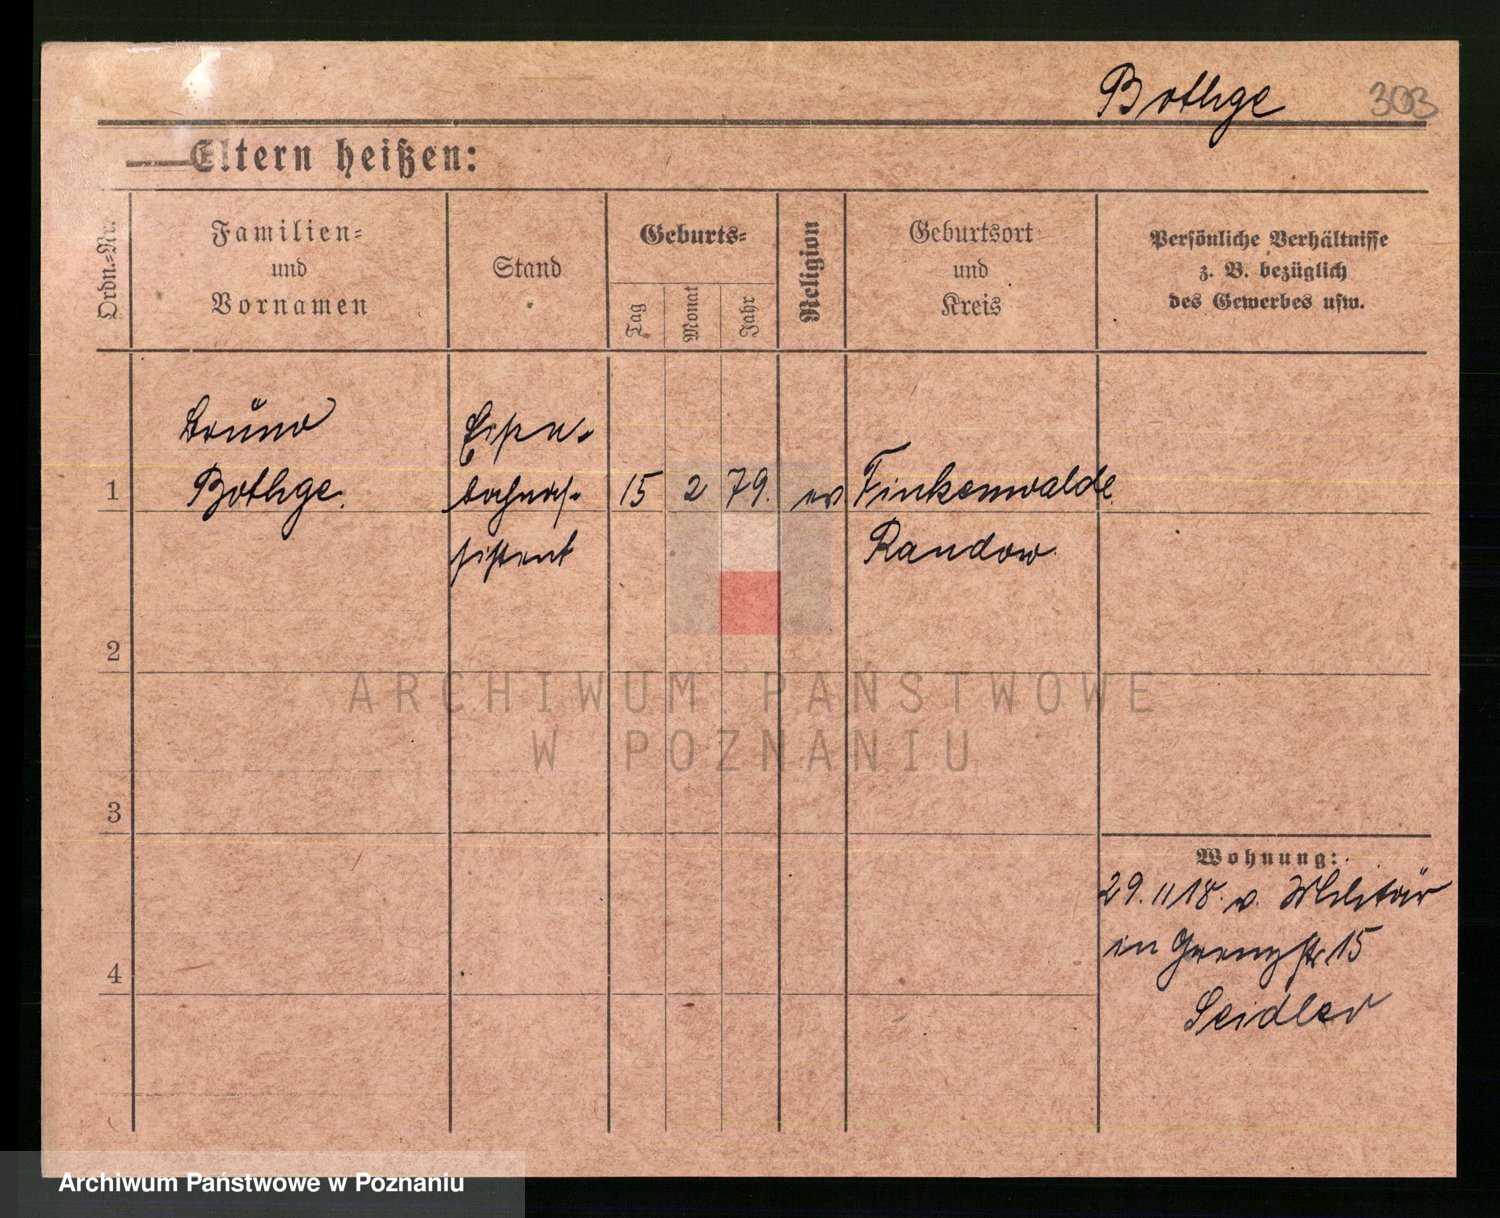 Bothge 303
Eltern heißen:
Ordn.-Nr.
Familien-
und
Vornamen
Stand
Geburts-
Tag
Monat
Jahr
Religion
Geburtsort
und
Kreis
Persönliche Verhältnisse
z. B. bezüglich
des Gewerbes usw.
Bruno
Bothge.
Eisen-
bahnas-
sistent
1
15 2 79. ev
Finkenwalde
Randow
2
3
4
ARCHIWUM PAŃSTWOWE
W POZNANIU
Wohnung:
29.11 18. v. Militär
in Grenzstr. 15
Seidler
Archiwum Państwowe w Poznaniu